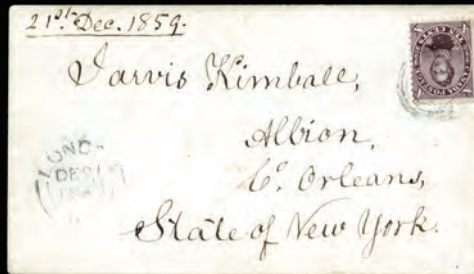 21st. Dec. 1859.
Jarvis Kimball,
Albion,
Co. Orleans,
State of New York.
DE
CANADA POSTAGE